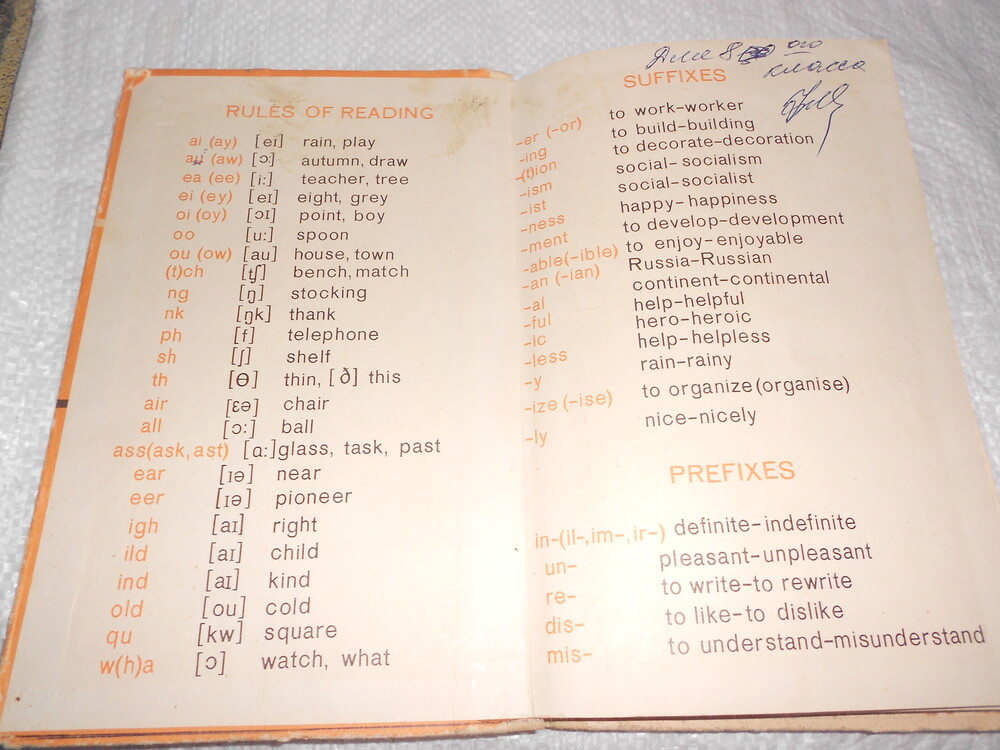 RULES OF READING
ai (ay) [eɪ] rain, play
au (aw) [ɔ:] autumn, draw
ea (ee) [i:] teacher, tree
ei (ey) [eɪ] eight, grey
oi (oy) [ɔɪ] point, boy
oo [u:] spoon
ou (ow) [au] house, town
(t)ch [tʃ] bench, match
ng [ŋ] stocking
nk [ŋk] thank
ph [f] telephone
sh [ʃ] shelf
th [θ] thin, [ð] this
air [ɛə] chair
all [ɔ:] ball
ass(ask, ast) [ɑ:] glass, task, past
ear [ɪə] near
eer [ɪə] pioneer
igh [aɪ] right
ild [aɪ] child
ind [aɪ] kind
old [ou] cold
qu [kw] square
w(h)a [ɔ] watch, what
для 8 ого
класса
SUFFIXES
-er (-or) to work-worker
-ing to build-building
-(t)ion to decorate-decoration
-ism social-socialism
-ist social-socialist
-ness happy-happiness
-ment to develop-development
-able(-ible) to enjoy-enjoyable
-an (-ian) Russia-Russian
-al continent-continental
-ful help-helpful
-ic hero-heroic
-less help-helpless
-y rain-rainy
-ize (-ise) to organize (organise)
-ly nice-nicely
PREFIXES
in-(il-, im-, ir-) definite-indefinite
un- pleasant-unpleasant
re- to write-to rewrite
dis- to like-to dislike
mis- to understand-misunderstand